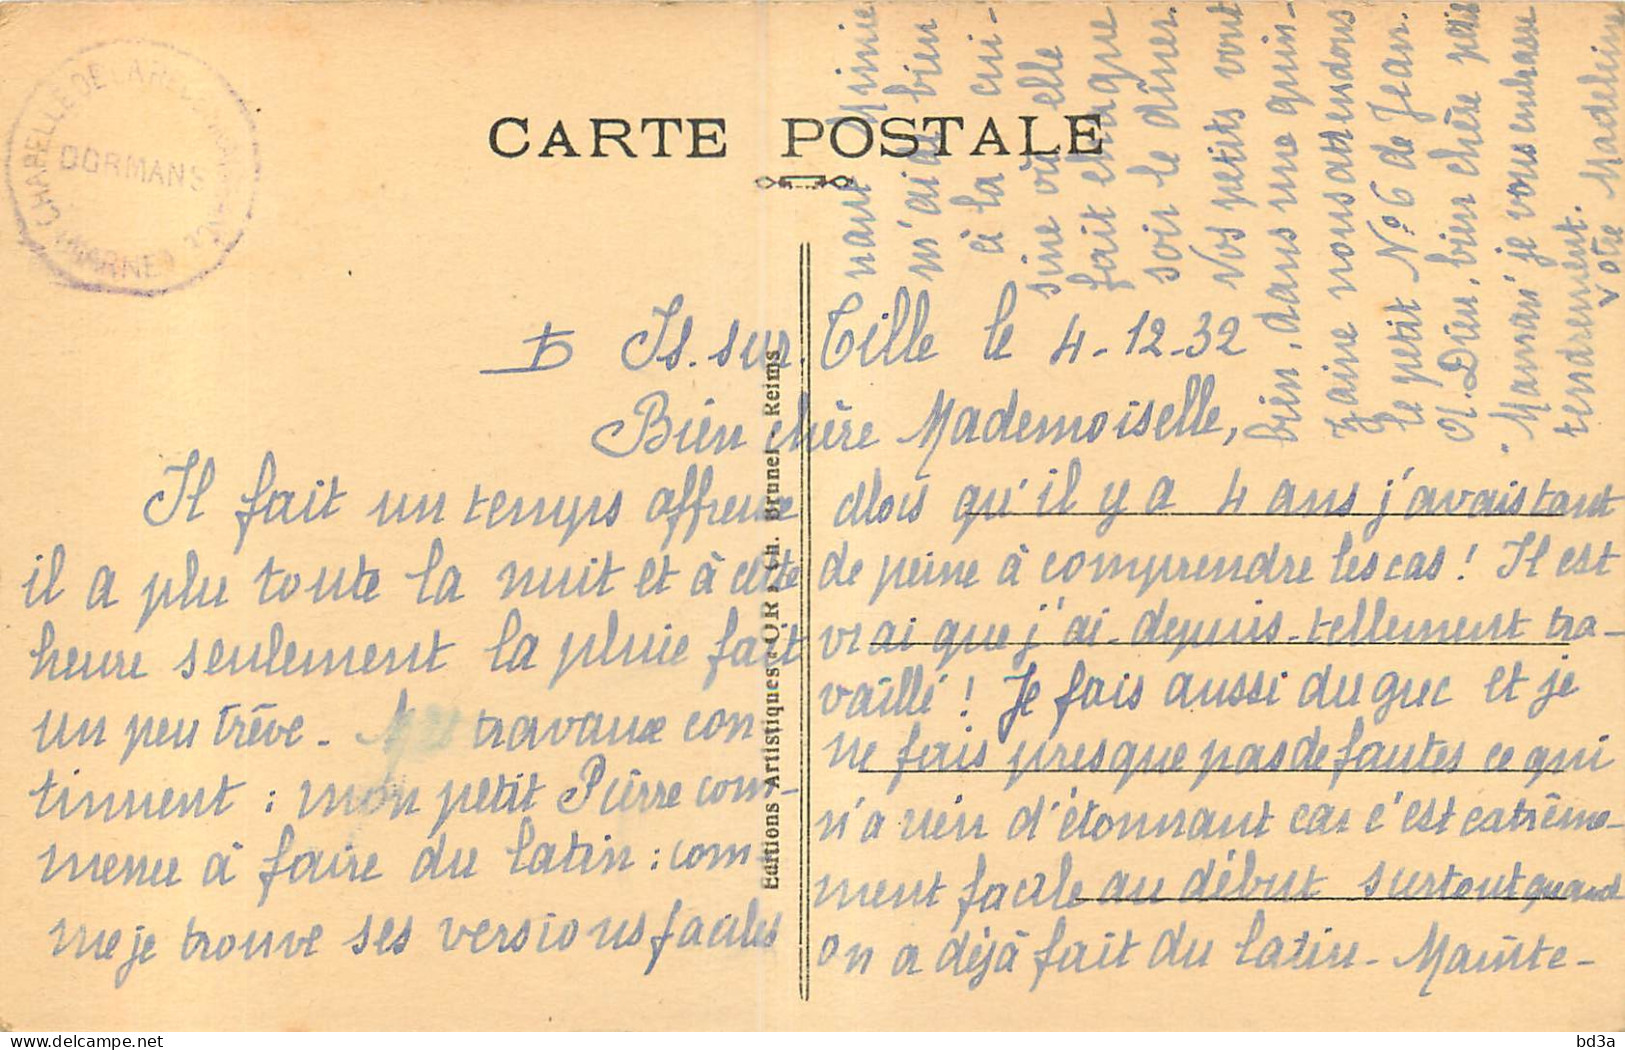 CHAPELLE DE LA RECONNAISSANCE
DORMANS
(MARNE)
CARTE POSTALE
Editions Artistiques "OR" Ch. Brunel - Reims
Is. sur. Tille le 4-12-32
Bien chère Mademoiselle,
Il fait un temps affreux
il a plu toute la nuit et à cette
heure seulement la pluie fait
un peu trêve. travaux con-
tinuent : mon petit Pierre com-
mence à faire du latin : com-
me je trouve ses versions faciles
Alors qu'il y a 4 ans j'avais tant
de peine à comprendre les cas ! Il est
vrai que j'ai depuis tellement tra-
vaillé ! Je fais aussi du grec et je
ne fais presque pas de fautes ce qui
n'a rien d'étonnant car c'est extrême-
ment facile au début surtout quand
on a déjà fait du latin. Mainte-
nant Mimie
m'aide bien
à la cui-
sine où elle
fait chaque
soir le dîner.
Vos petits vont
bien, dans une quin-
zaine nous attendons
le petit N°6 de Jean.
A. Dieu, bien chère petite
Maman je vous embrasse
tendrement.
votre Madeleine
bd3a